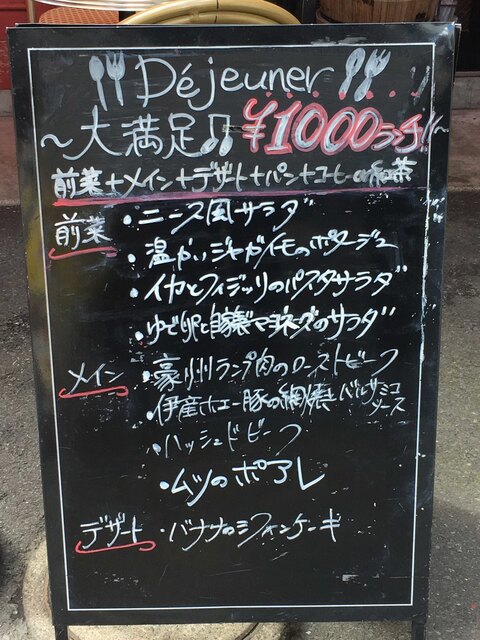 Déjeuner
～大満足♫ ¥1000ランチ!!～
前菜+メイン+デザート+パン+コーヒーor紅茶
前菜 ・ニース風サラダ
・温かいジャガイモのポタージュ
・イカとフィジッリのパスタサラダ
・ゆで卵と自家製マヨネーズのサラダ
メイン ・豪州ランプ肉のローストビーフ
・伊産ホエー豚の網焼き バルサミコソース
・ハッシュドビーフ
・ムツのポアレ
デザート ・バナナのシフォンケーキ